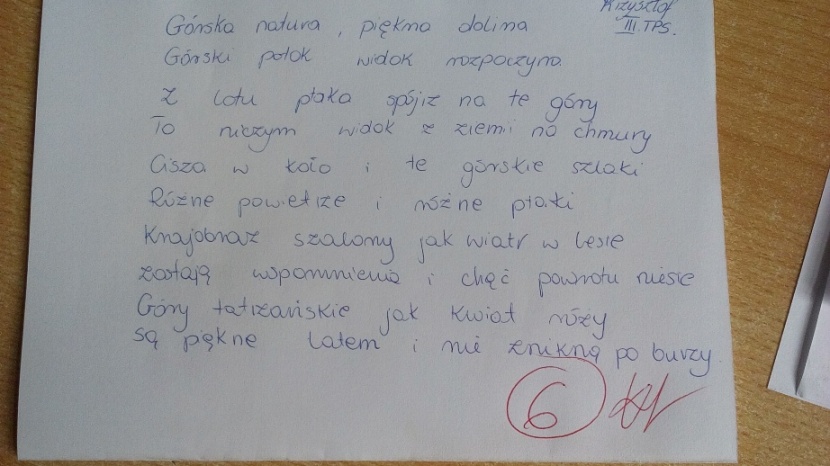 Krzysztof
III TPS.
Górska natura, piękna dolina
Górski potok widok rozpoczyna
Z lotu ptaka spójrz na te góry
To niczym widok z ziemi na chmury
Cisza w koło i te górskie szlaki
Różne powietrze i różne ptaki
Krajobraz szalony jak wiatr w lesie
zostają wspomnienia i chęć powrotu niesie
Góry tatrzańskie jak kwiat róży
są piękne latem i nie znikną po burzy.
6